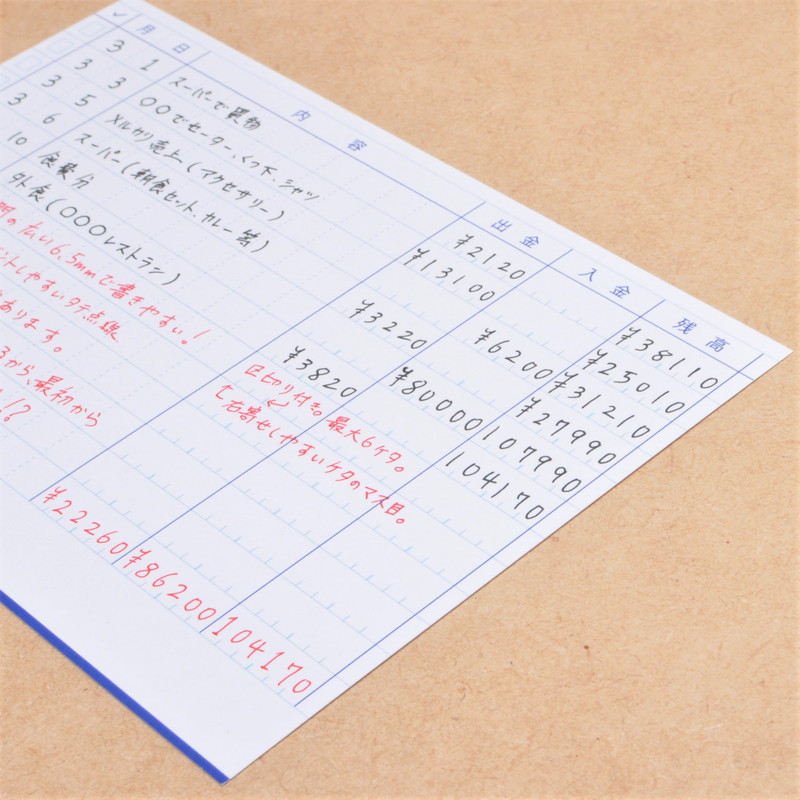 ✓ 月 日 内容 出金 入金 残高
3 1 スーパーで買物 ¥2120 ¥38110
3 3 〇〇でセーター、くつ下、シャツ ¥13100 ¥25010
3 5 メルカリ売上(アクセサリー) ¥6200 ¥31210
3 6 スーパー(朝食セット、カレー等) ¥3220 ¥27990
10 食費分 ¥80000 107990
外食(〇〇〇レストラン) ¥3820 104170
の広い6.5mmで書きやすい!
ントしやすいタテ点線
あります。
から、最初から
!?
区切り付き。最大6ケタ。
右寄せしやすいケタのマス目。
¥22260 ¥86200 104170